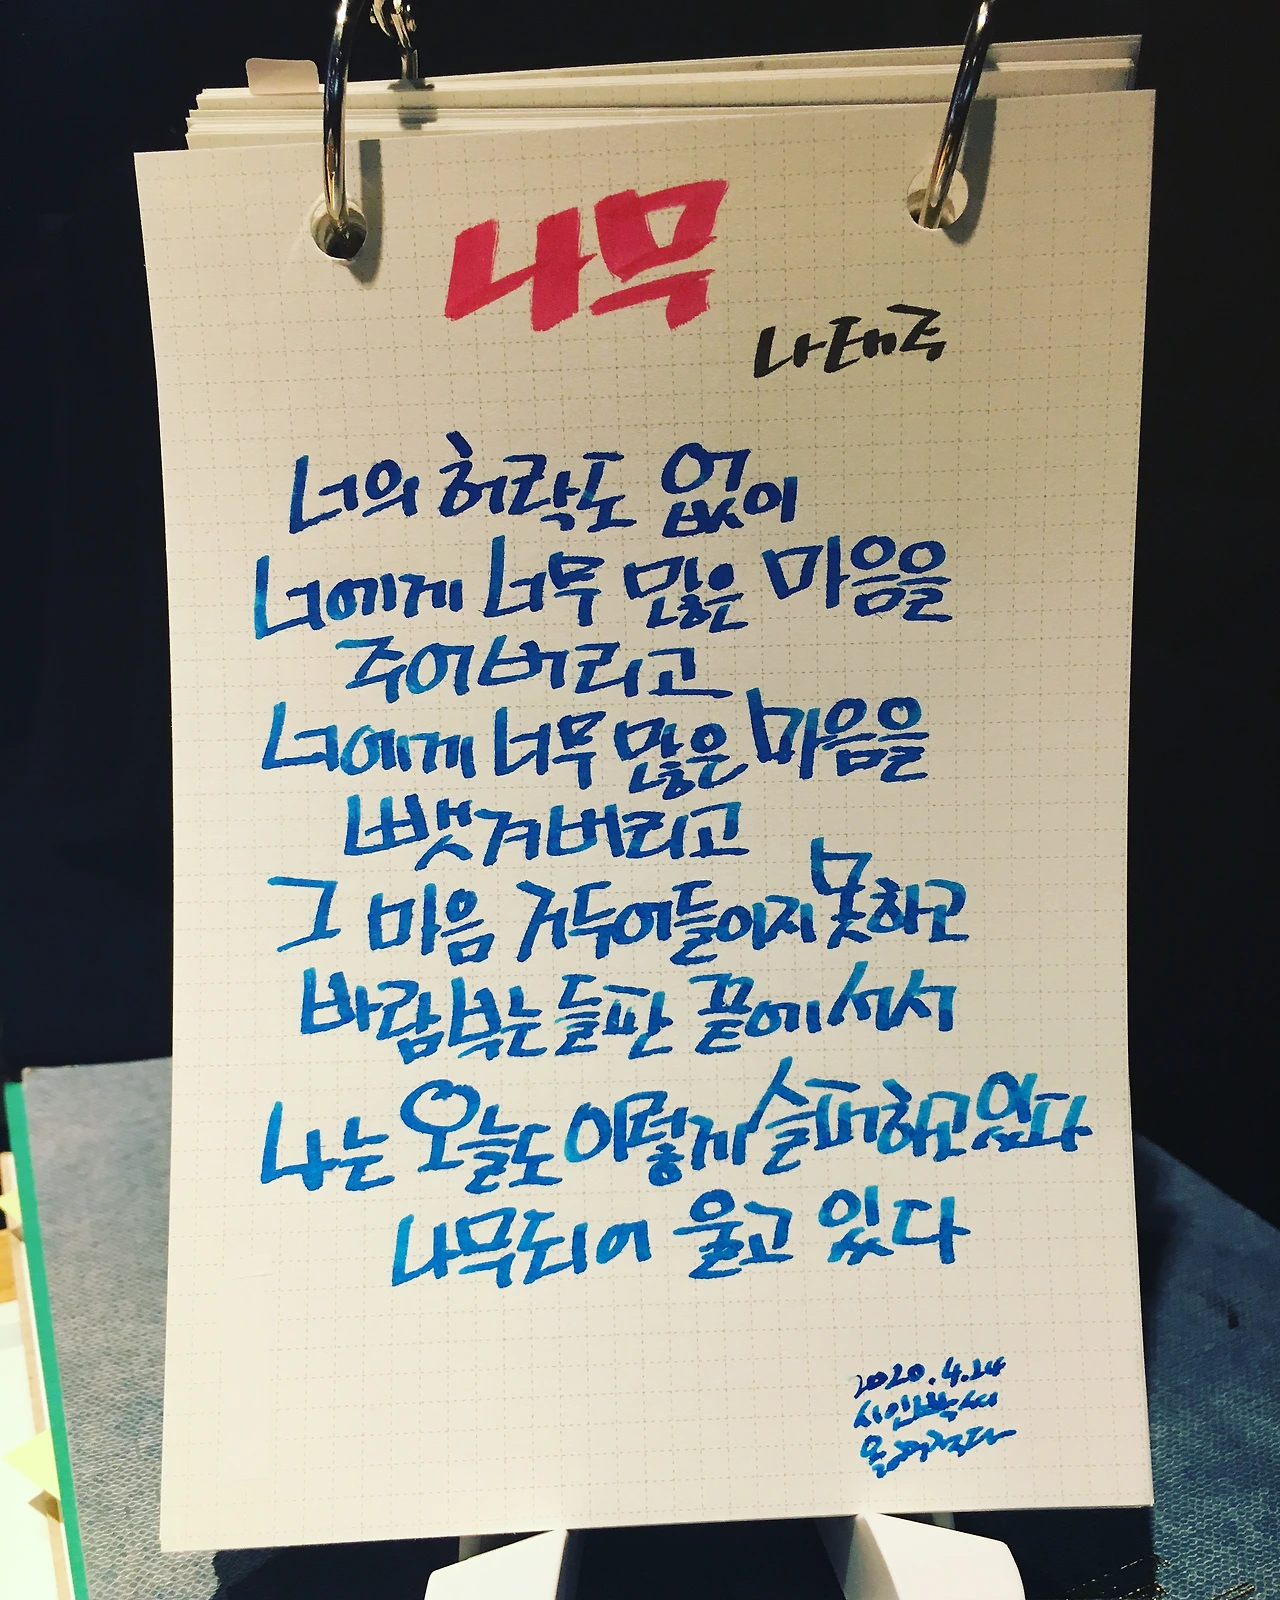 나무
나태주
너의 허락도 없이
너에게 너무 많은 마음을
주어버리고
너에게 너무 많은 마음을
뺏겨버리고
그 마음 거두어들이지 못하고
바람부는 들판 끝에 서서
나는 오늘도 이렇게 슬퍼하고 있다
나무되어 울고 있다
2020.4.24
시인박씨
옮겨적다